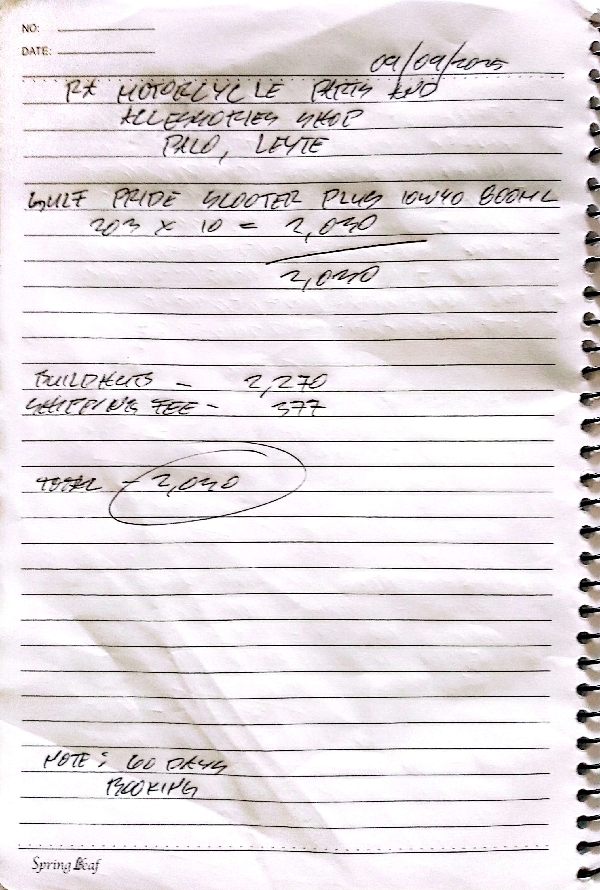 NO:
DATE:
09/09/2025
RA MOTORCYCLE PARTS AND
ACCESSORIES SHOP
PALO, LEYTE
GULF PRIDE SCOOTER PLUS 10W40 800ML
203 X 10 = 2,030
2,030
- 2,270
SHIPPING FEE - 377
TOTAL - 2,030
NOTE: 60 DAYS
BOOKING
Spring Leaf